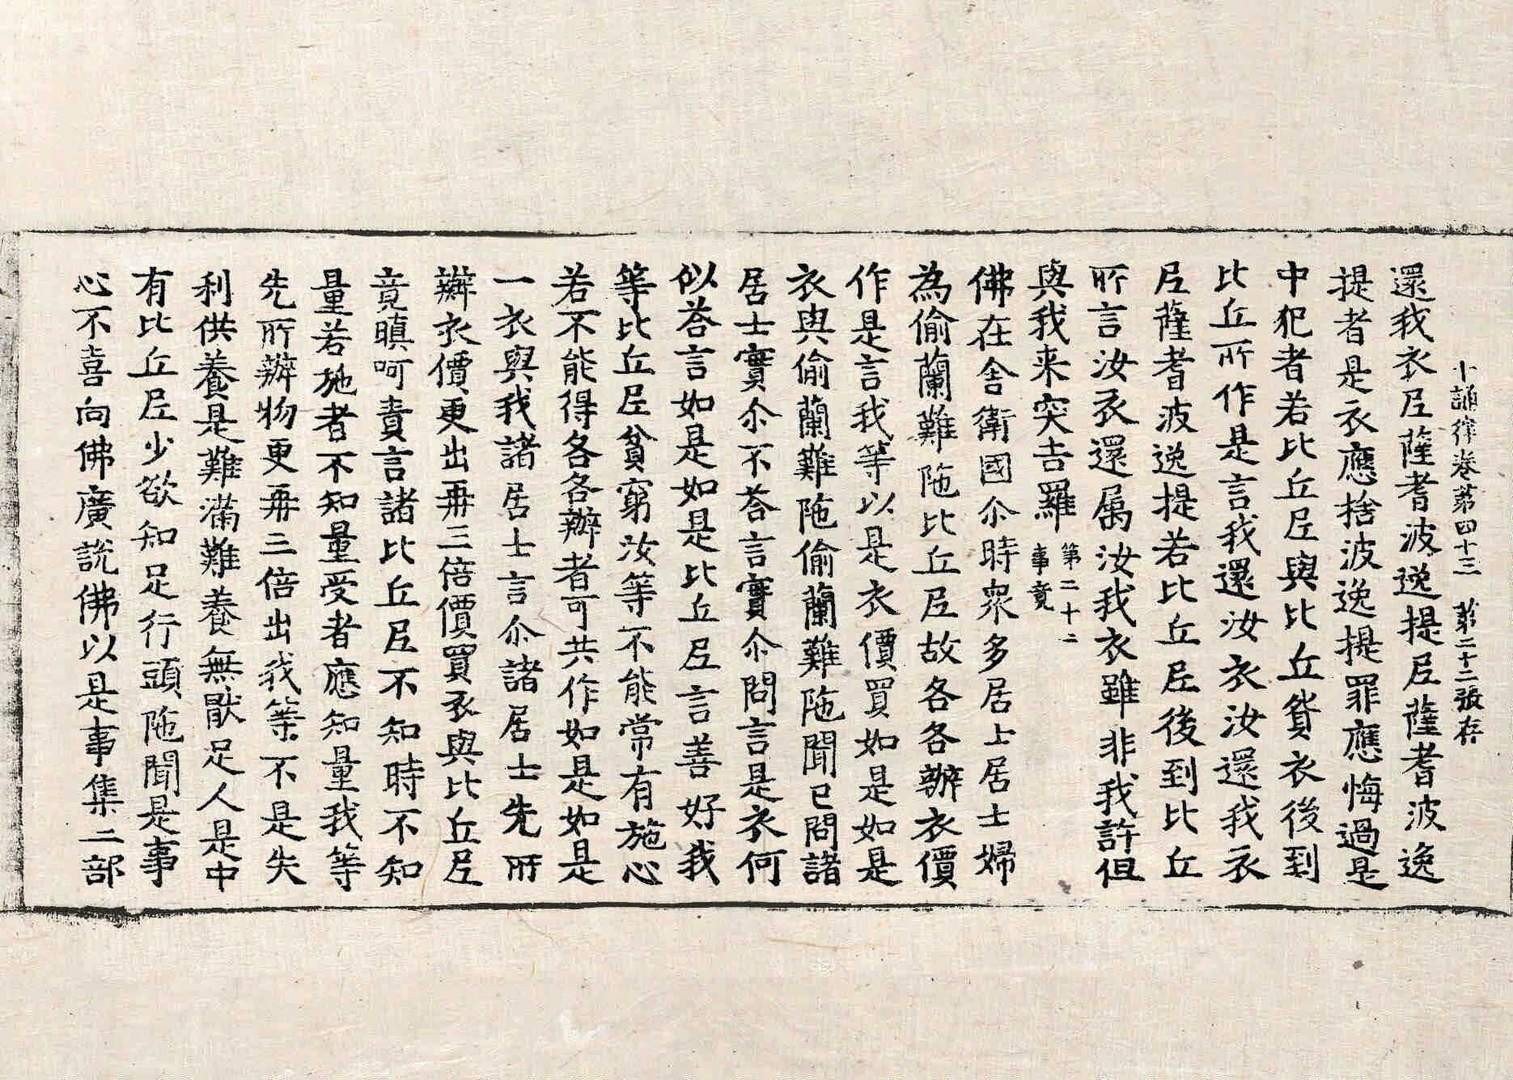 十誦律卷第四十三 第二十二張 存
還我衣𡰱薩耆波逸提𡰱薩耆波逸
提者是衣應捨波逸提罪應悔過是
中犯者若比丘𡰱與比丘貿衣後到
比丘所作是言我還汝衣汝還我衣
𡰱薩耆波逸提若比丘𡰱後到比丘
所言汝衣還属汝我衣雖非我許但
與我来突吉羅 第二十二
事竟
佛在舍衛國尒時衆多居士居士婦
為偷蘭難陁比丘𡰱故各各辦衣價
作是言我等以是衣價買如是如是
衣與偷蘭難陁偷蘭難陁聞已問諸
居士實尒不荅言實尒問言是衣何
似荅言如是如是比丘𡰱言善好我
等比丘𡰱貧窮汝等不能常有施心
若不能得各各辦者可共作如是如是
一衣與我諸居士言尒諸居士先所
辦衣價更出再三倍價買衣與比丘𡰱
竟瞋呵責言諸比丘𡰱不知時不知
量若施者不知量受者應知量我等
先所辦物更再三倍出我等不是失
利供養是難滿難養無猒足人是中
有比丘𡰱少欲知足行頭陁聞是事
心不喜向佛廣說佛以是事集二部